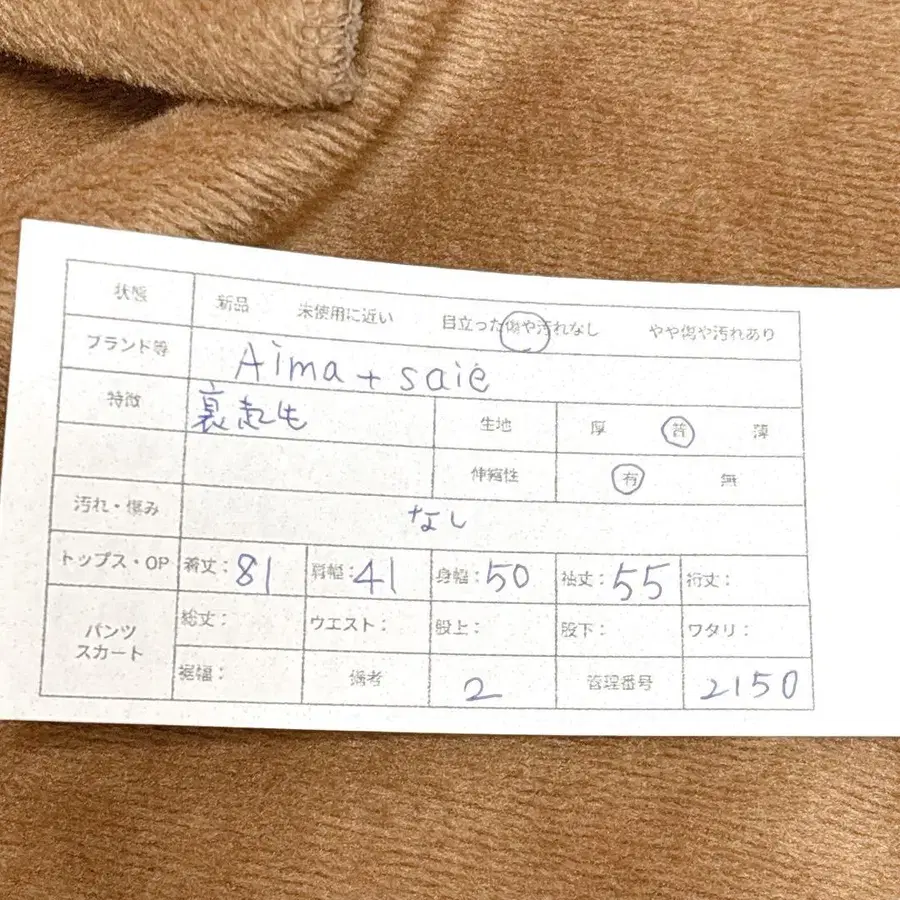 状態 新品 未使用に近い 目立った傷や汚れなし やや傷や汚れあり
ブランド等 Aima + saie
特徴 裏起毛 生地 厚 普 薄
伸縮性 有 無
汚れ・傷み なし
トップス・OP 着丈：81 肩幅：41 身幅：50 袖丈：55 裄丈：
パンツ スカート 総丈： ウエスト： 股上： 股下： ワタリ：
裾幅： 備考 2 管理番号 2150